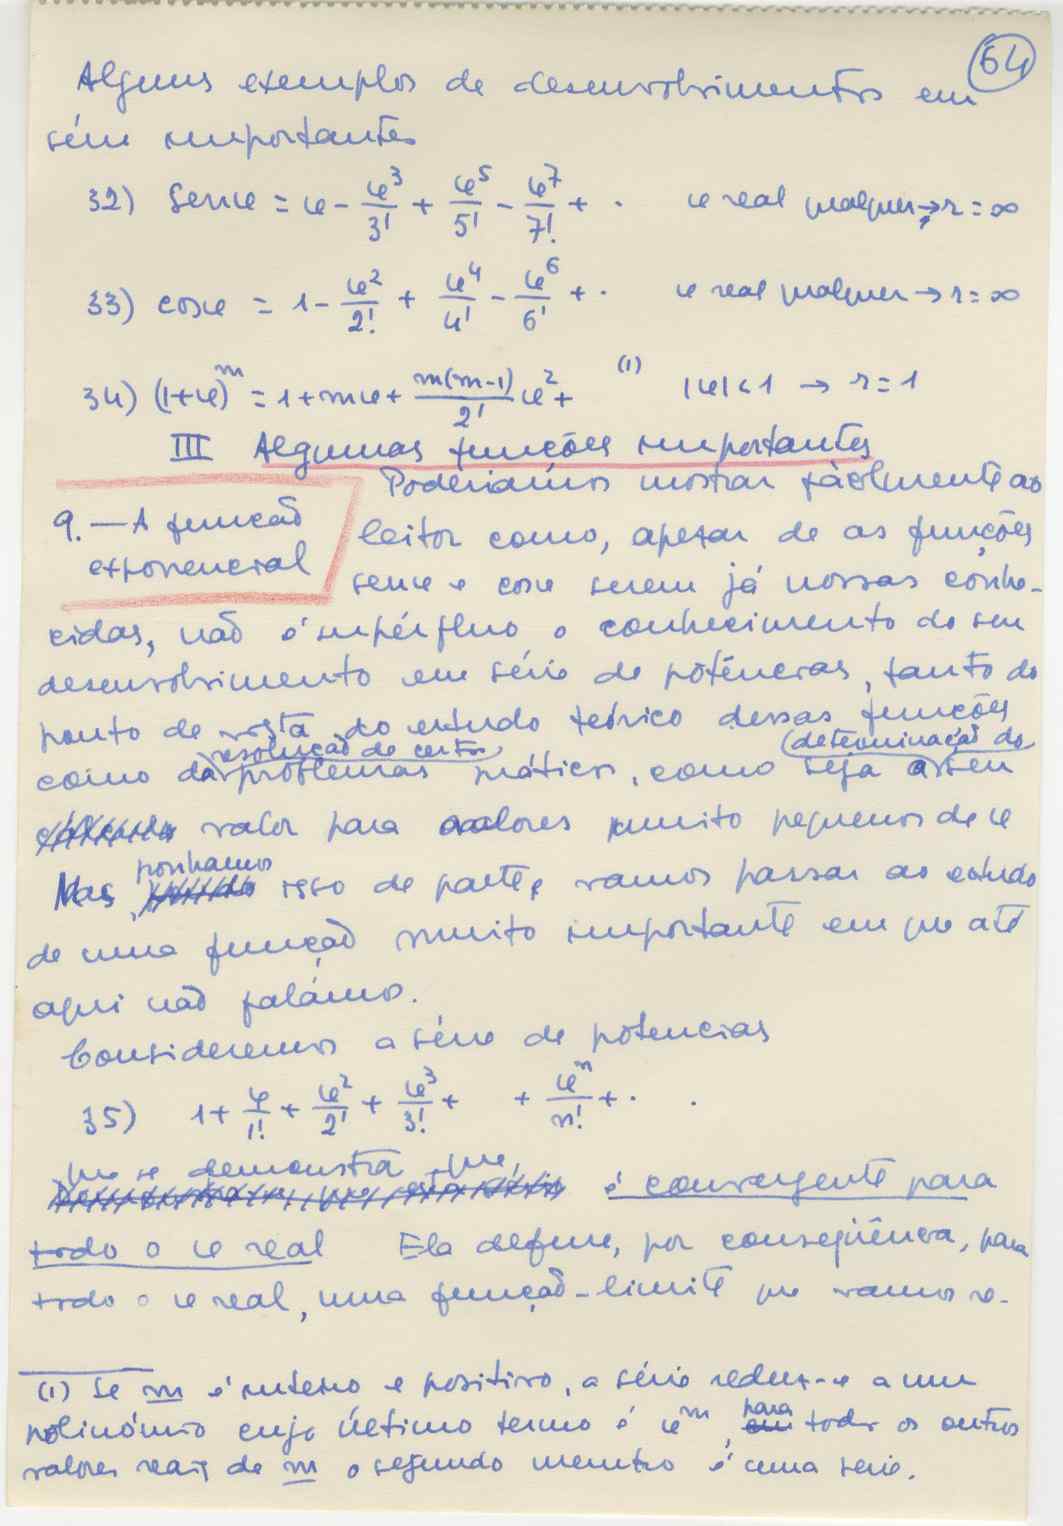 64
Alguns exemplos de desenvolvimentos em
série importantes
32) sen x = x - x³/3! + x⁵/5! - x⁷/7! + · x real qualquer → r = ∞
33) cos x = 1 - x²/2! + x⁴/4! - x⁶/6! + · x real qualquer → r = ∞
34) (1+x)^m = 1 + mx + m(m-1)/2! x² + (1) |x| < 1 → r = 1
III Algumas funções importantes
9. — A função
exponencial
Poderíamos mostrar fàcilmente ao
leitor como, apezar de as funções
sen x e cos x serem já nossas conhe-
cidas, não é supérfluo o conhecimento do seu
desenvolvimento em série de potências, tanto do
ponto de vista do estudo teórico dessas funções
como da resolução de certos problemas práticos, como seja a determinação do seu
valor para valores muito pequenos de x
Mas, ponhamos isso de parte, vamos passar ao estudo
de uma função muito importante em que até
aqui não falámos.
Consideremos a série de potencias
35) 1 + x/1! + x²/2! + x³/3! + + xⁿ/n! + · ·
que se demonstra que, é convergente para
todo o x real Ela define, por conseqüência, para
todo o x real, uma função-limite que vamos re-
(1) Se m é inteiro e positivo, a série reduz-se a um
polinómio cujo último termo é x^m, para todos os outros
valores reais de m o segundo membro é uma serie.